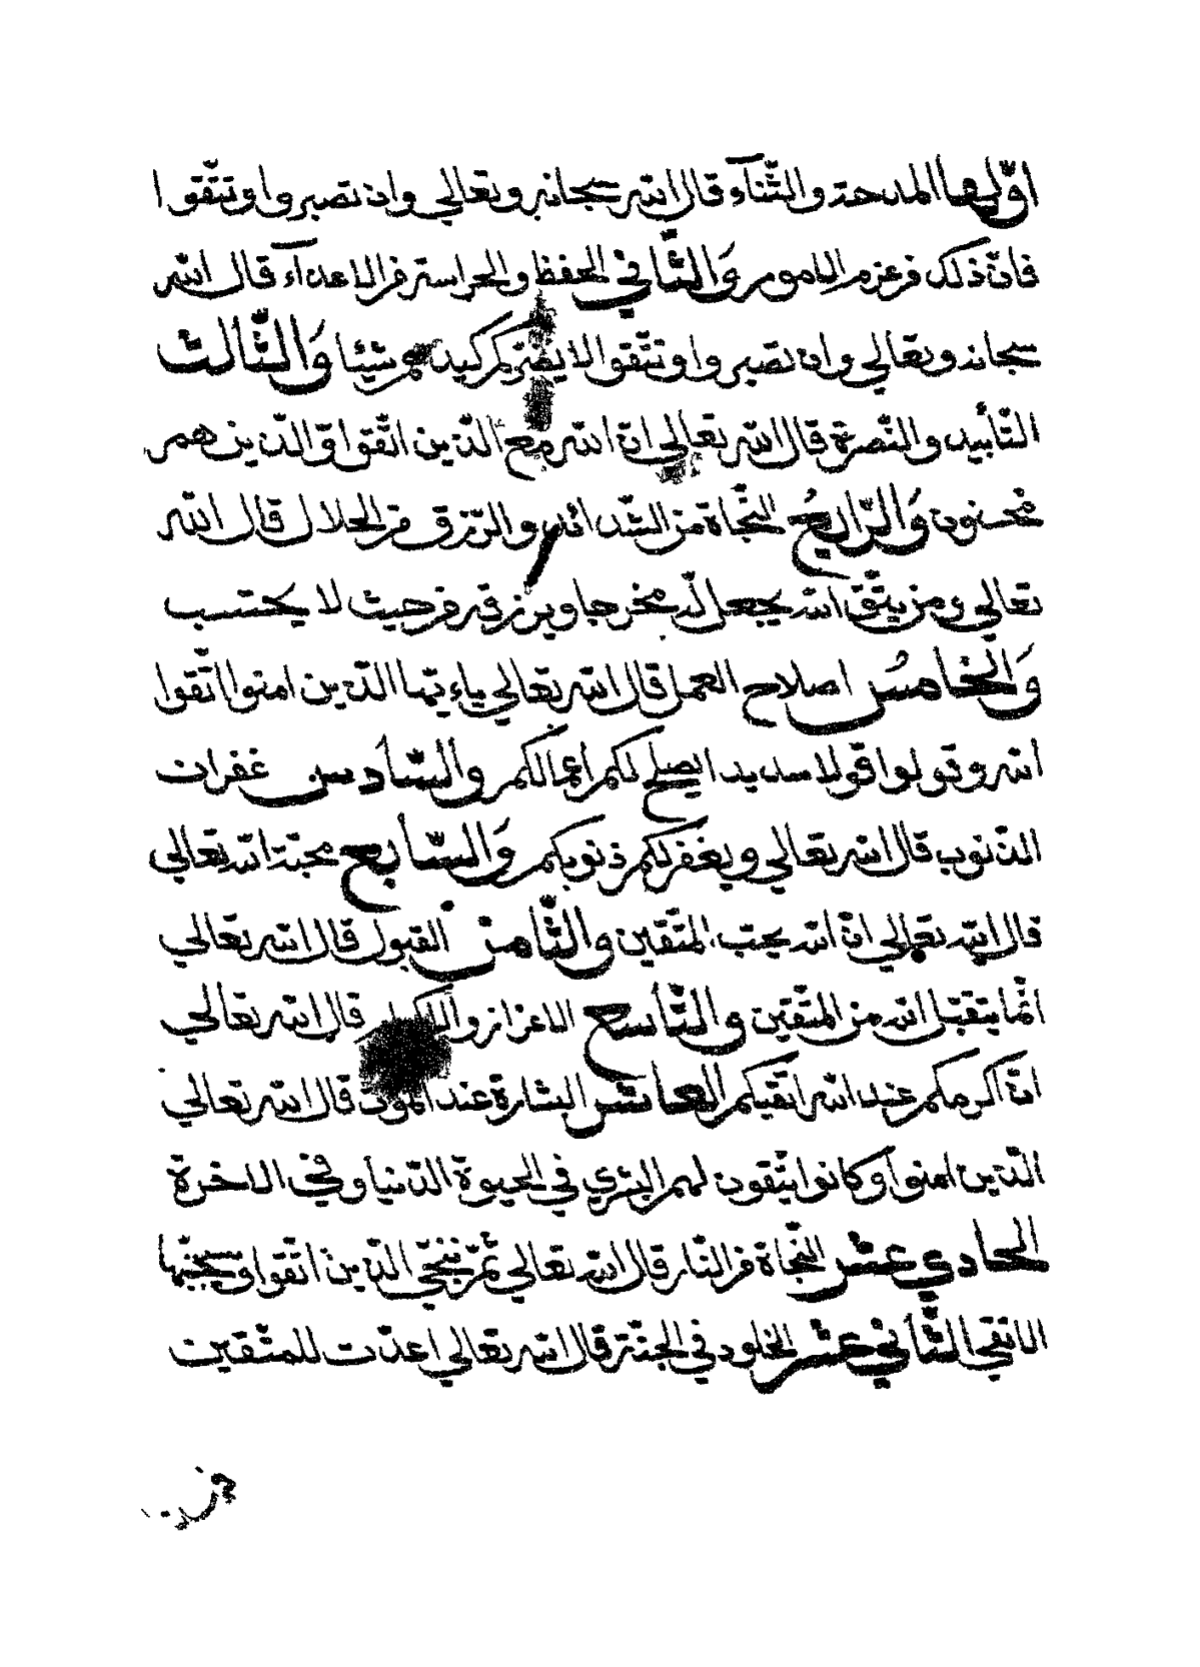 اوّليها المدحة والثّنآء قال الله سبحانه وتعالي وان تصبروا وتتّقوا
فانّ ذلك من عزم الامور وَالثّاني الحفظ والحراسة من الاعدآء قال الله
سبحانه وتعالي وان تصبروا وتتّقوا لا يضرّكم كيدهم شيئا وَالثّالث
التّأييد والنّصرة قال الله تعالي انّ الله مع الّذين اتّقوا وّالّذين هم
محسنون وَالرّابع النّجاة من الشّدائد والرّزق من الحلال قال الله
تعالي ومن يتّق الله يجعل لّه مخرجا ويرزقه من حيث لا يحتسب
وَالخامس اصلاح العمل قال الله تعالي ياءيّها الّذين امنوا اتّقوا
الله وقولوا قولا سديدا يصلح لكم اعمالكم والسّادس غفران
الذّنوب قال الله تعالي ويغفر لكم ذنوبكم وَالسّابع محبّة الله تعالي
قال الله تعالي انّ الله يحبّ المتّقين والثّامن القبول قال الله تعالي
انّما يتقبّل الله من المتّقين والتّاسع الاعزاز والاكرام قال الله تعالي
انّ اكرمكم عند الله اتقيكم العاشر البشارة عند الموت قال الله تعالي
الّذين امنوا وكانوا يتّقون لهم البشري في الحيوة الدّنيا وفي الاخرة
الحادي عشر النّجاة من النّار قال الله تعالي ثمّ ننجّي الّذين اتّقوا وسيجنّبها
الاتقي الثّاني عشر الخلود في الجنّة قال الله تعالي اعدّت للمتّقين